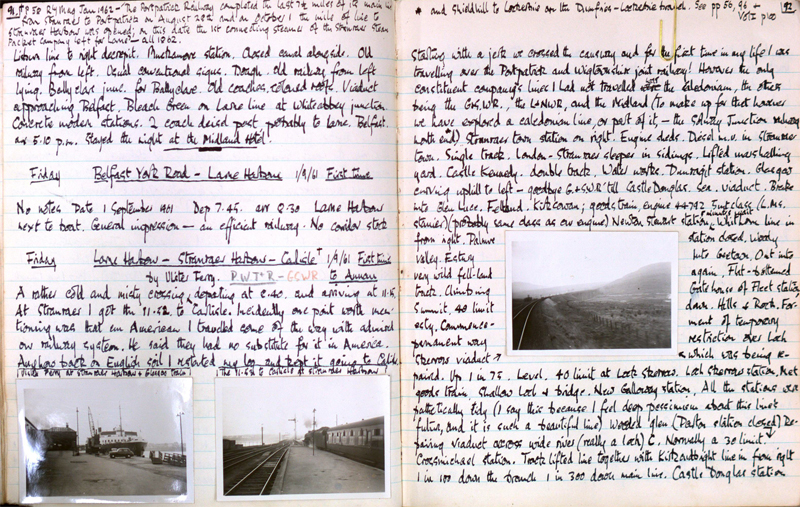 91. P 50 Ry Mag Jan 1962 - The Portpatrick Railway completed the last 7¼ miles of its main
line from Stranraer to Portpatrick on August 28th and on October 1 the mile of line to
Stranraer Harbour was opened; on this date the 1st connecting steamer of the Stranraer Steam
Packet Company left for Larne - all 1862.
Labour line to right decrepit. Muckamore station. Closed canal alongside. Old
railway from left. Usual conventional signs. Doagh. Old railway from left
lying. Ballyclare junc. for Ballyclare. Old coaches, coloured roofs. Viaduct
approaching Belfast. Bleach Green on Larne line at Whiteabbey junction
Concrete modern stations. 2 coach diesel past probably to Larne. Belfast.
arr 5.10 p.m. Stayed the night at the Midland Hotel.
Friday Belfast York Road - Larne Harbour 1/9/61 First time
No notes Date 1 September 1961 Dep 7.45. arr 8.30 Larne Harbour
next to boat. General impression - an efficient railway. No corridor stock
Friday Larne Harbour - Stranraer Harbour - Carlisle 1/9/61 First time
by Ulster Ferry. P.W.J.R - G&SWR to Annan
A rather cold and misty crossing, departing at 8.40. and arriving at 11.15.
At Stranraer I got the 11.52 to Carlisle. Incidently one point worth men-
tioning was that an American I travelled some of the way with admired
our railway system. He said they had no substitute for it in America.
Anyhow back on English soil I restarted my log and kept it going to Carlisle
Ulster Ferry at Stranraer Harbour & Glasgow train
The 11.52 to Carlisle at Stranraer Harbour
* and Shieldhill to Lochmaben on the Dumfries - Lockerbie branch. See pp 50, 96 +
Vol II p100
92
Starting with a jerk we crossed the causeway and for the first time in my life I was
travelling over the Portpatrick and Wigtownshire joint railway! However the only
constituent company's lines I had not travelled over were the Caledonian, the others
being the G&S.W.R., the L&NWR, and the Midland (To make up for that however
we have explored a Caledonian line, or part of it, - the Solway Junction railway
north end) Stranraer town station on right. Engine sheds. Diesel m.u. in Stranraer
town. Single track. London - Stranraer sleeper in sidings. Lifted marshalling
yard. Castle Kennedy. double track. Water works. Dunragit station. Glasgow
curving uphill to left - goodbye G&SWR till Castle Douglas. Sea. viaduct. Brake
into Glen Luce. Fell land. Kirkcowan; goods train, engine 44792 5mt class (L.M.S.
Stanier) (probably same class as our engine) Newton Stewart station, Whithorn line in
from right. Palnure
valley. Estuary
very wild fell-land
track. Climbing
Summit. 40 limit
esty. Commence-
permanent way
Skerrow viaduct
station closed, woody
into Creetown. Out into
again, Flat-bottomed
Gatehouse of Fleet station
down. Hills & Rock. For-
ment of temporary
restriction over Loch
which was being re-
paired. Up 1 in 75. Level. 40 limit at Loch Skerrow. Loch Skerrow station, Met
goods train, shallow loch & bridge. New Galloway station. All the stations were
pathetically tidy (I say this because I feel deep pessimism about this line's
future, and it is such a beautiful line) Wooded glen (Parton station closed) Re-
pairing viaduct across wide river (really a loch) C. Normally a 30 limit
Crossmichael station. Track lifted line together with Kirkcudbright line in from right
1 in 100 down the branch 1 in 300 down main line. Castle Douglas station